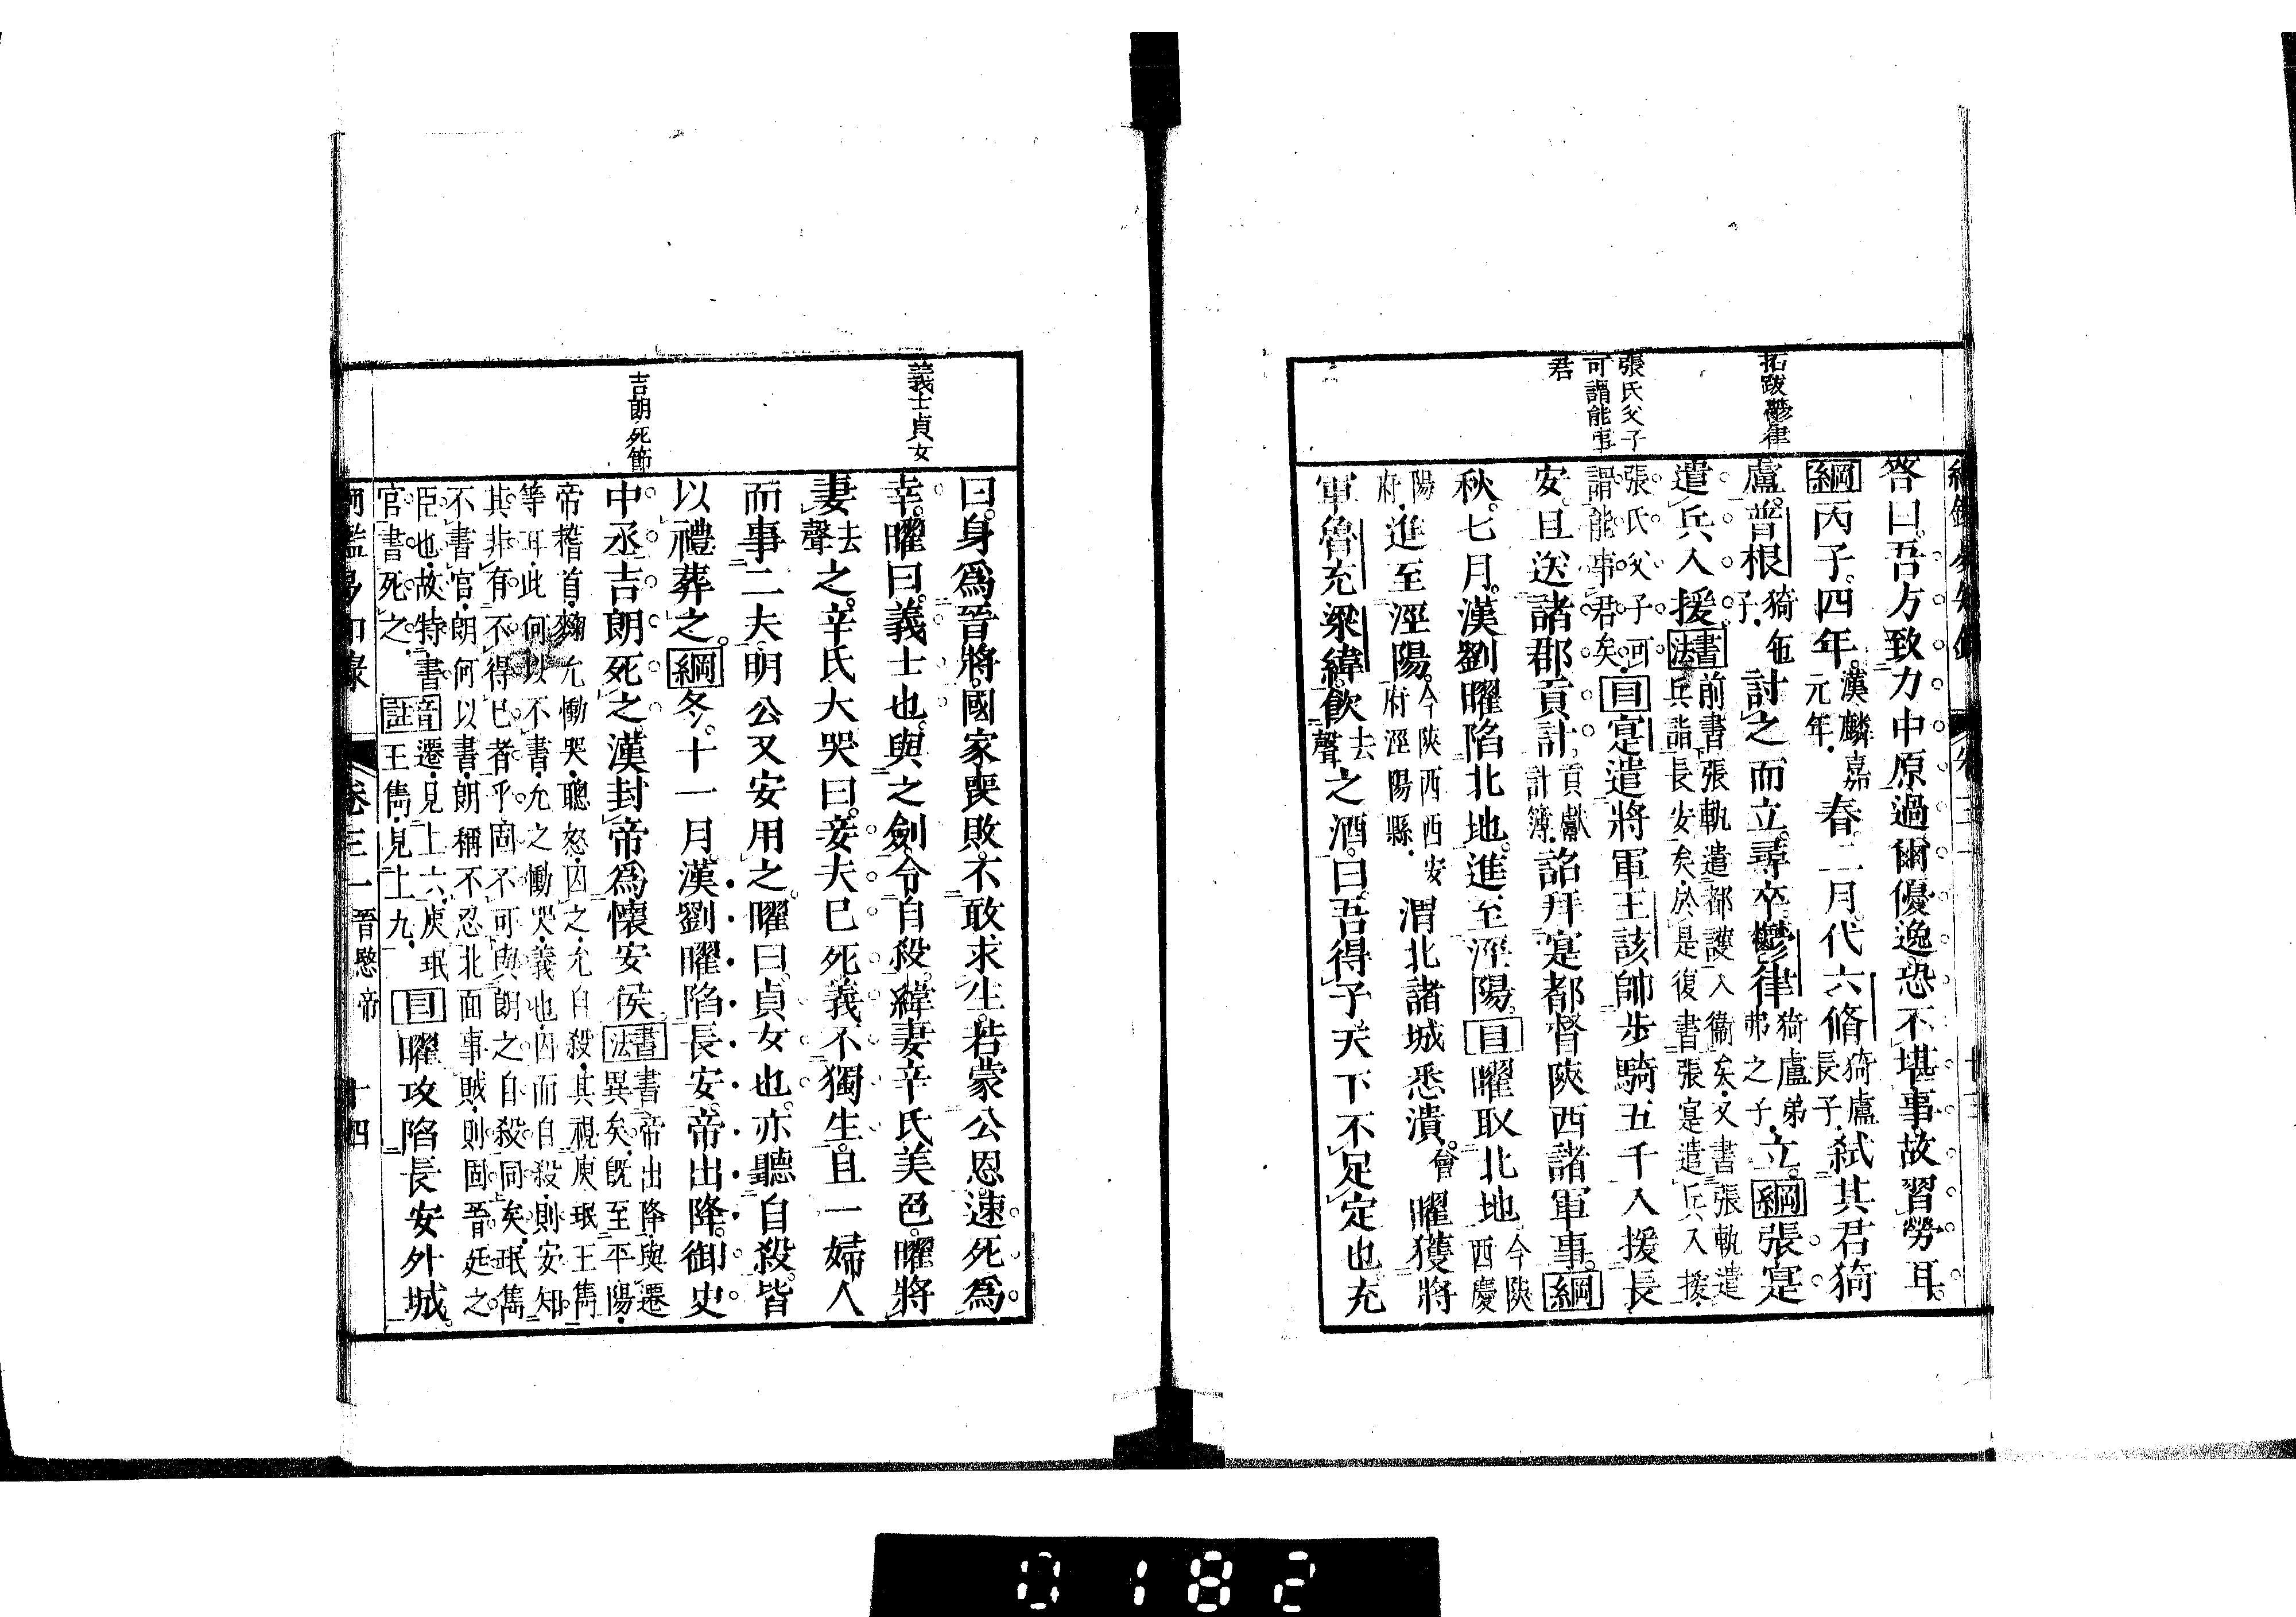 拓跋鬱律
張氏父子
可謂能事
君
答曰。吾方致力中原。過爾優逸。恐不堪事。故習勞耳。
綱丙子。四年。漢麟嘉元年。春二月。代六脩猗盧長子。弑其君猗
盧。普根猗㐌子。討之而立。尋卒。鬱律猗盧弟弗之子。立。綱張寔
遣兵入援。書法前書張軌遣都護入衞矣。又書張軌遣兵詣長安矣。於是復書張寔遣兵入援。
張氏父子可謂能事君矣。目寔遣將軍王該帥步騎五千入援長
安。且送諸郡貢計。貢獻計簿。詔拜寔都督陝西諸軍事。綱
秋。七月。漢劉曜陷北地。進至涇陽。目曜取北地今陝西慶
陽府。進至涇陽。今陝西西安府涇陽縣。渭北諸城悉潰。曜獲將
軍魯充梁緯。飲去聲之酒。曰。吾得子。天下不足定也。充
義士貞女
吉朗死節
曰。身爲晉將。國家喪敗。不敢求生。若蒙公恩。速死爲
幸。曜曰。義士也。與之劍。令自殺。緯妻辛氏美色。曜將
妻去聲之。辛氏大哭曰。妾夫已死。義不獨生。且一婦人
而事二夫。明公又安用之。曜曰。貞女也。亦聽自殺。皆
以禮葬之。綱冬。十一月。漢劉曜陷長安。帝出降。御史
中丞吉朗死之。漢封帝爲懷安侯。書法書帝出降。與遷異矣。旣至平陽。
帝稽首。麴允慟哭。聰怒。囚之。允自殺。其視庾珉王雋
等耳。此何以不書。允之慟哭。義也。囚而自殺。則安知
其非有不得已者乎。固不可與朗之自殺同矣。珉雋
不書官。朗何以書。朗稱不忍北面事賊。則固晉廷之
臣也。故特書
官。書死之。音註遷。見上六。庾珉王雋。見上九。目曜攻陷長安外城。
綱鑑易知錄 卷三一 晉愍帝 十四